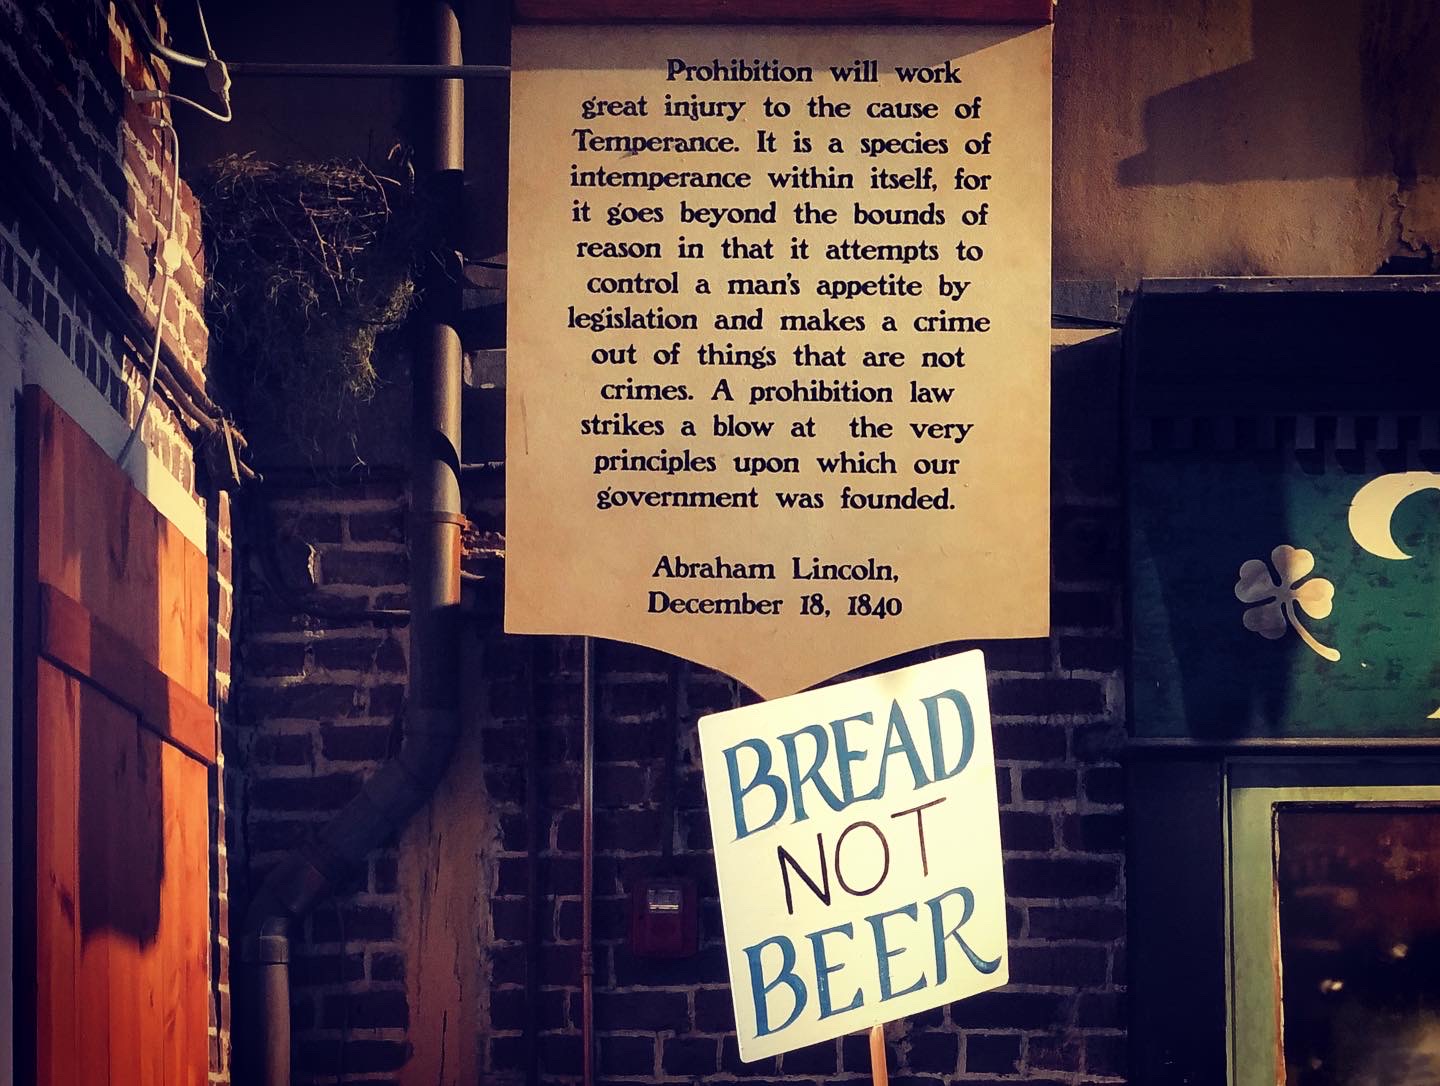 Prohibition will work
great injury to the cause of
Temperance. It is a species of
intemperance within itself, for
it goes beyond the bounds of
reason in that it attempts to
control a man's appetite by
legislation and makes a crime
out of things that are not
crimes. A prohibition law
strikes a blow at the very
principles upon which our
government was founded.
Abraham Lincoln,
December 18, 1840
BREAD
NOT
BEER